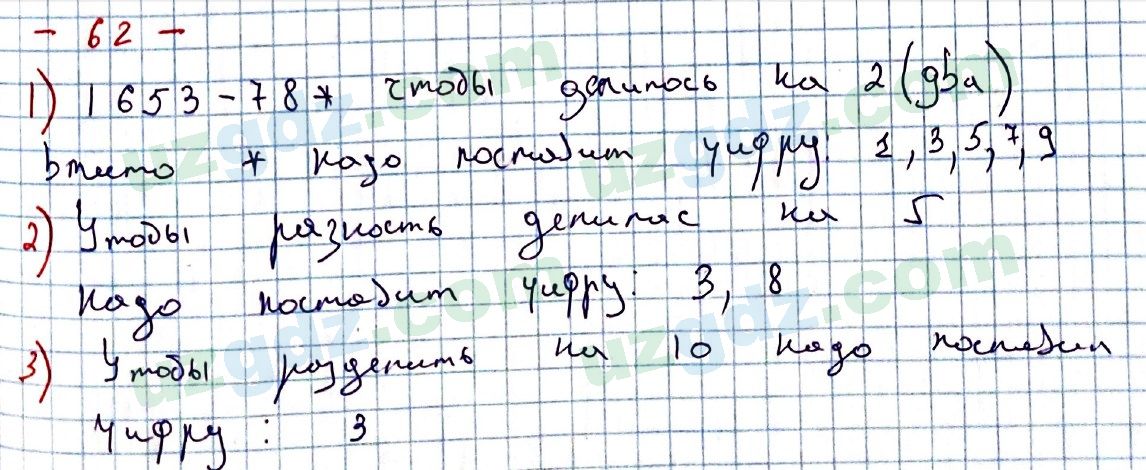 - 62 -
1) 1653 - 78* чтобы делилось на 2 (два)
вместо * надо поставит цифру: 1, 3, 5, 7, 9
2) Чтобы разность делилас на 5
надо поставит цифру: 3, 8
3) Чтобы разделить на 10 надо поставил
цифру : 3
uzgdz.com
uzgdz.com
uzgdz.com
uzgdz.com